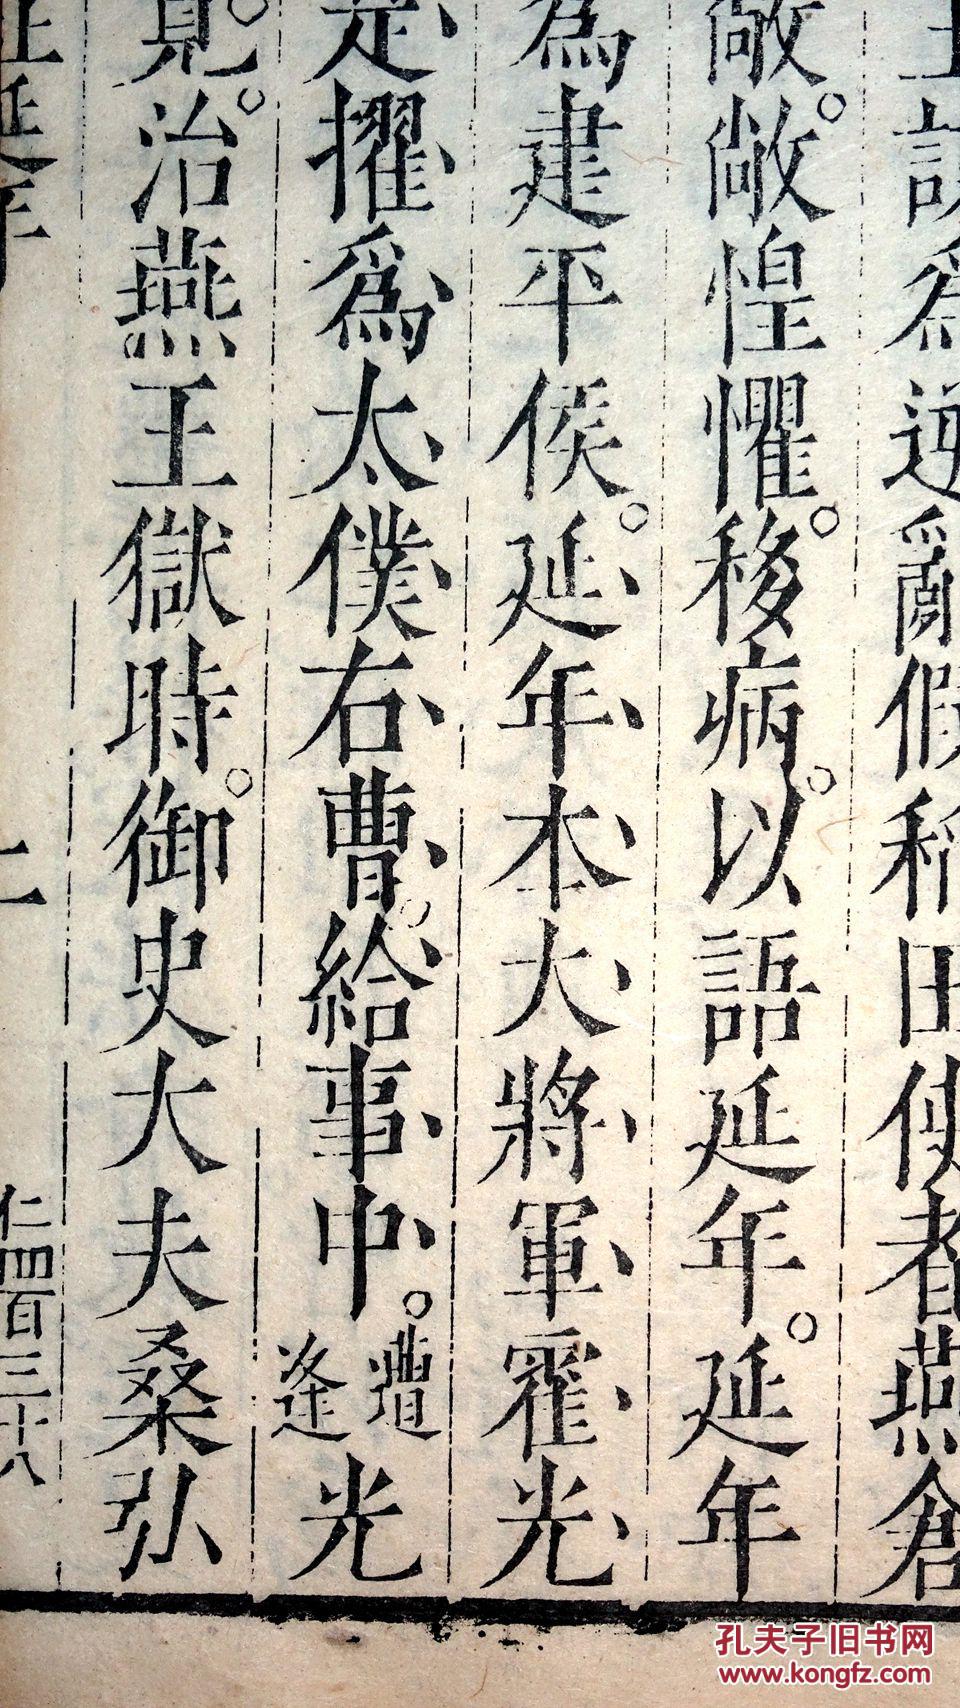 謀爲逆亂假稻田使者燕倉
敞敞惶懼移病以語延年延年
爲建平侯延年本大將軍霍光
是擢爲太僕右曹給事中遭逢光
見治燕王獄時御史大夫桑弘
杜延年
仁四百三十八
孔夫子旧书网
www.kongfz.com